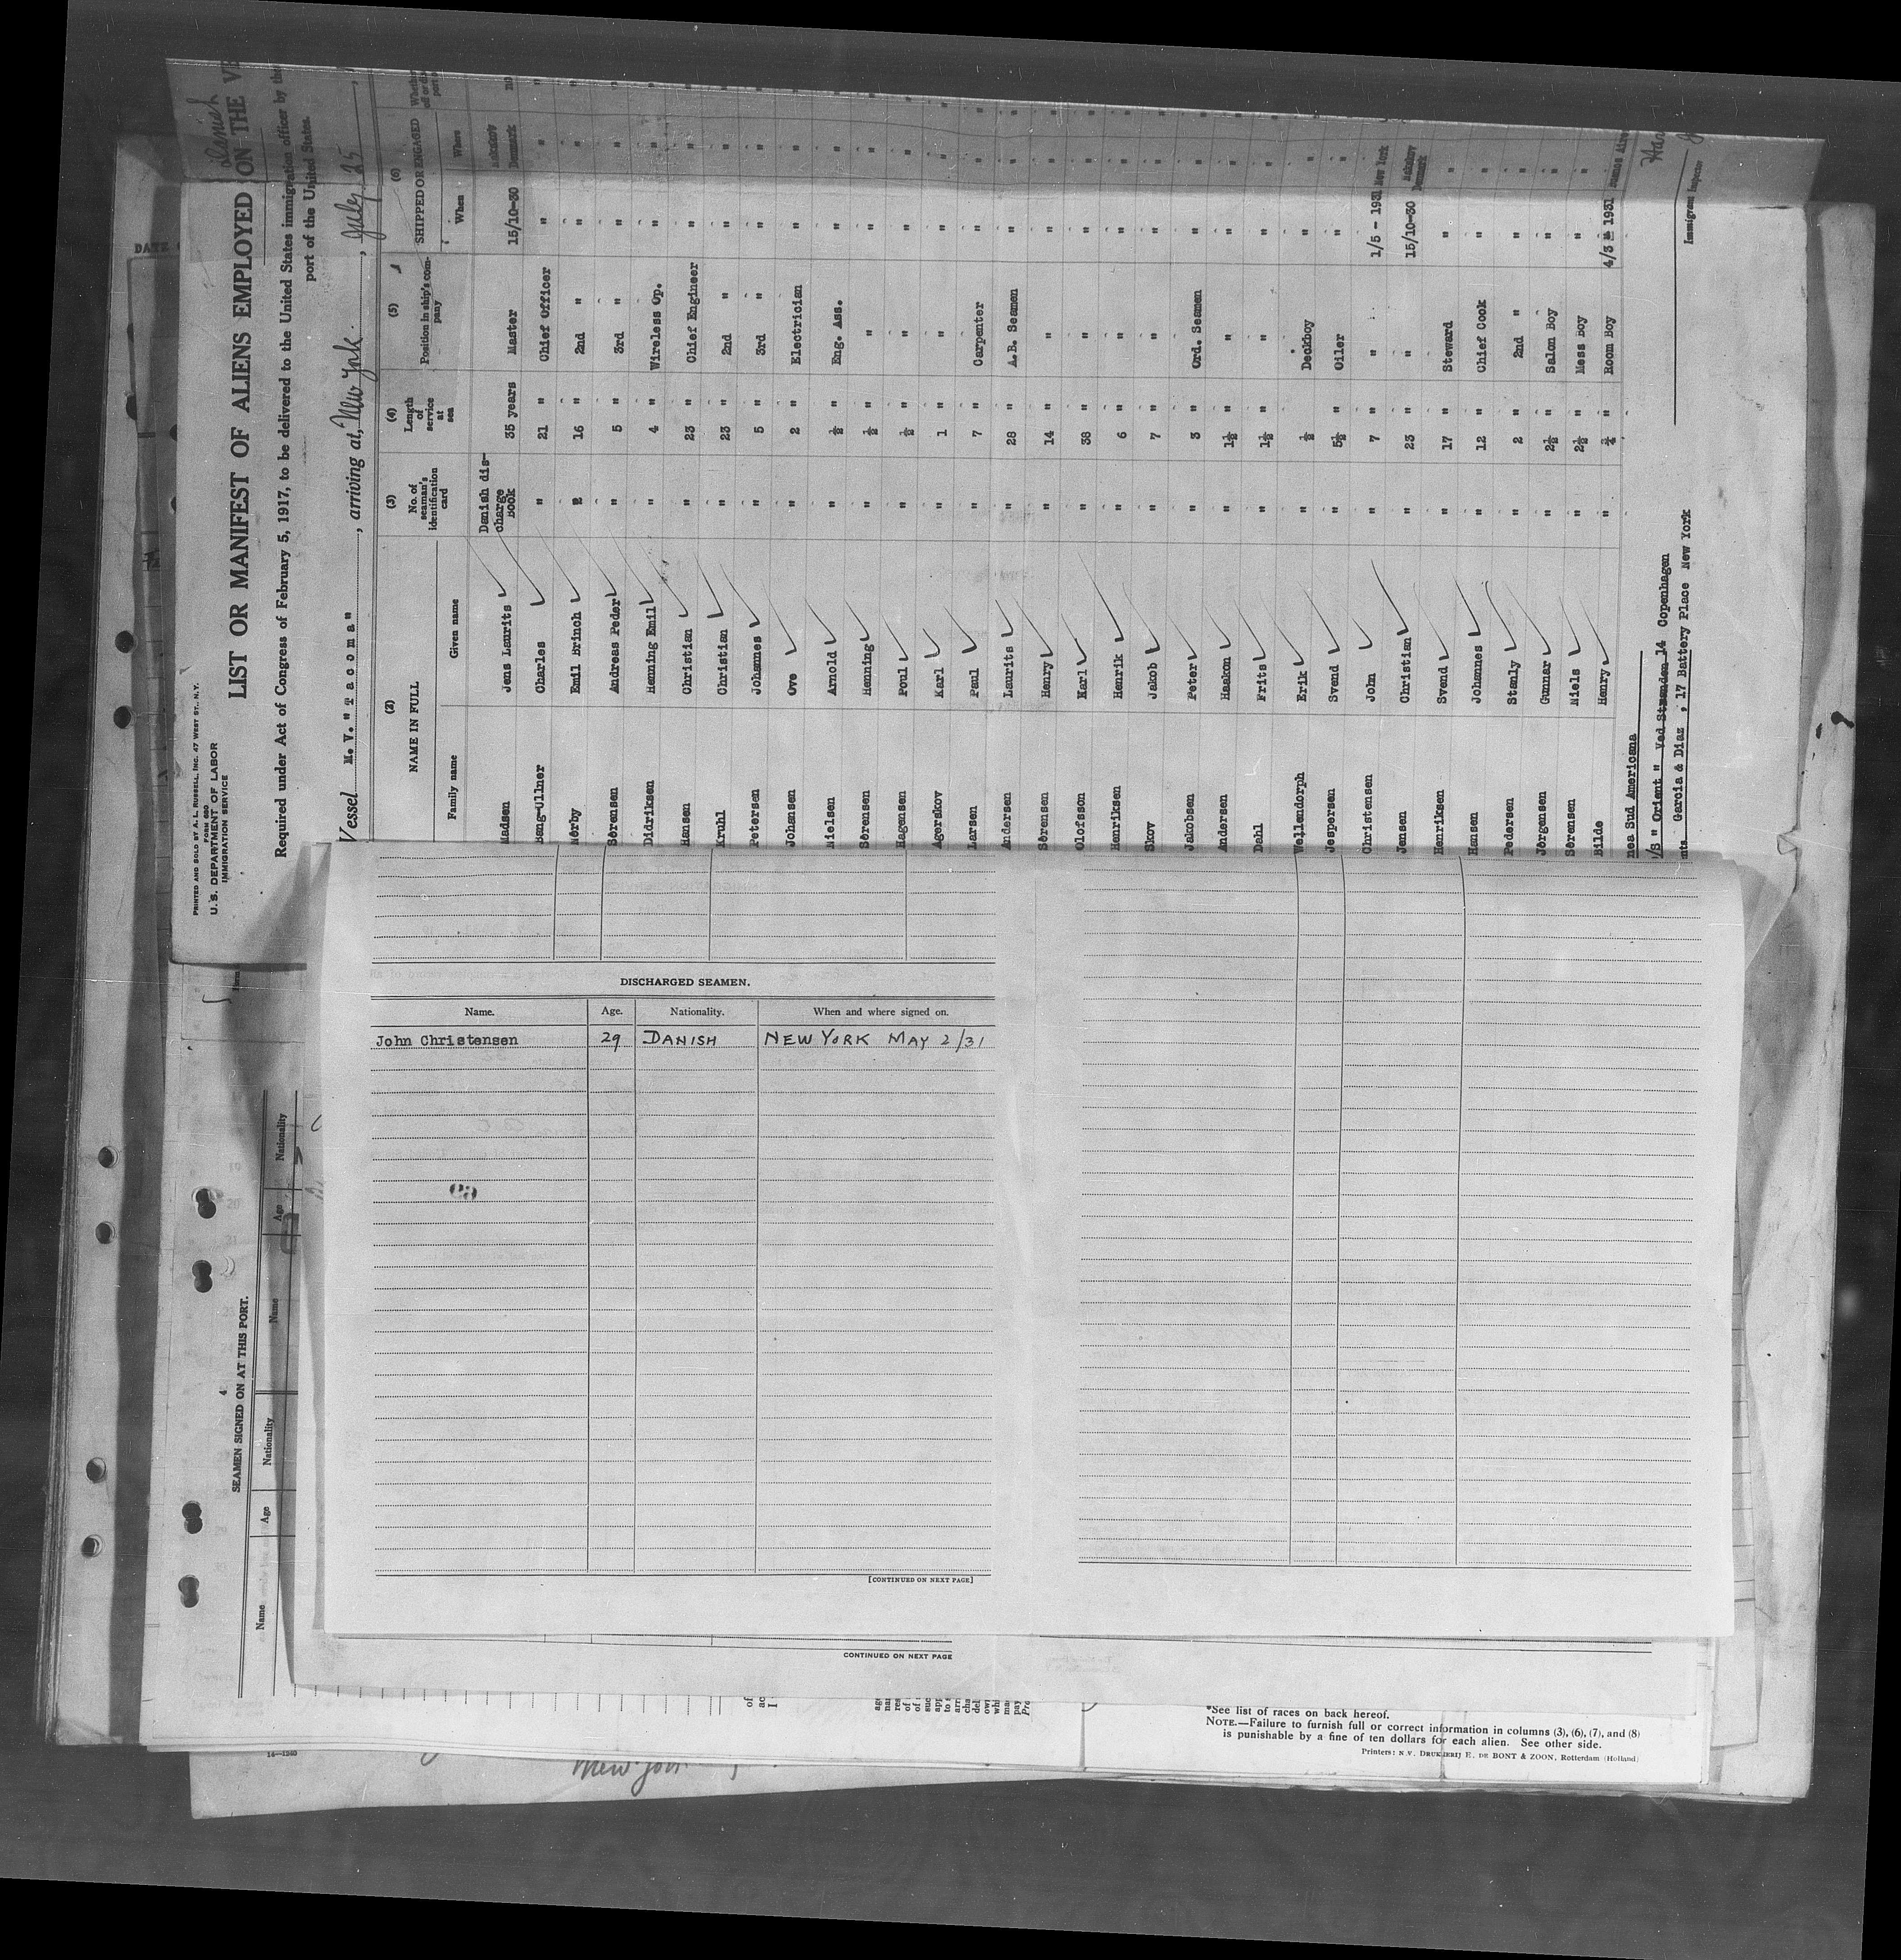 PRINTED AND SOLD BY A. L. RUSSELL, INC. 47 WEST ST., N.Y.
FORM 680
U. S. DEPARTMENT OF LABOR
IMMIGRATION SERVICE
Danish
LIST OR MANIFEST OF ALIENS EMPLOYED ON THE VE
Required under Act of Congress of February 5, 1917, to be delivered to the United States immigration officer by the
port of the United States.
Vessel M. V. "Tacoma", arriving at, New York, July 25,
(2) (3) (4) (5) (6)
NAME IN FULL No. of seaman's identification card Length of service at sea Position in ship's company SHIPPED OR ENGAGED
Family name Given name When Where
Madsen Jens Laurits Danish discharge Book 35 years Master 15/10-30 Nakskov Denmark
Bang-Ullner Charles " 21 " Chief Officer " "
Nörby Emil Brinch " 16 " 2nd " " "
Sörensen Andreas Peder " 5 " 3rd " " "
Didriksen Henning Emil " 4 " Wireless Op. " "
Hansen Christian " 23 " Chief Engineer " "
Kruhl Christian " 23 " 2nd " " "
Petersen Johannes " 5 " 3rd " " "
Johansen Ove " 2 " Electrician " "
Nielsen Arnold " ½ " Eng. Ass. " "
Sörensen Henning " ½ " " " "
Hagensen Poul " ½ " " " "
Agerskov Karl " 1 " " " "
Larsen Paul " 7 " Carpenter " "
Andersen Laurits " 28 " A.B. Seamen " "
Sörensen Henry " 14 " " " "
Olofsson Karl " 38 " " " "
Henriksen Henrik " 6 " " " "
Skov Jakob " 7 " " " "
Jakobsen Peter " 3 " Ord. Seamen " "
Andersen Haakon " 1½ " " " "
Dahl Frits " 1½ " " " "
Wellendorph Erik " ½ Deckboy " "
Jespersen Svend " 5½ " Oiler " "
Christensen John " 7 " " 1/5 - 1931 New York
Jensen Christian " 23 " " 15/10-30 Nakskov Denmark
Henriksen Svend " 17 " Steward " "
Hansen Johannes " 12 " Chief Cook " "
Pedersen Stanly " 2 " 2nd " " "
Jörgensen Gunnar " 2½ " Salon Boy " "
Sörensen Niels " 2½ " Mess Boy " "
Bilde Henry " ¾ " Room Boy 4/3 1931 Buenos Aires
nea Sud Americana
/S " Orient " Ved Stranden 14 Copenhagen
nts Garcia & Diaz , 17 Battery Place New York
Immigrant Inspector
DISCHARGED SEAMEN.
Name. Age. Nationality. When and where signed on.
John Christensen 29 DANISH NEW YORK MAY 2/31
[CONTINUED ON NEXT PAGE]
CONTINUED ON NEXT PAGE
4
SEAMEN SIGNED ON AT THIS PORT.
Name Age Nationality Name Age Nationality
*See list of races on back hereof.
NOTE.—Failure to furnish full or correct information in columns (3), (6), (7), and (8)
is punishable by a fine of ten dollars for each alien. See other side.
Printers: N.V. DRUKKERIJ E. DE BONT & ZOON, Rotterdam (Holland)
14—1240
New York